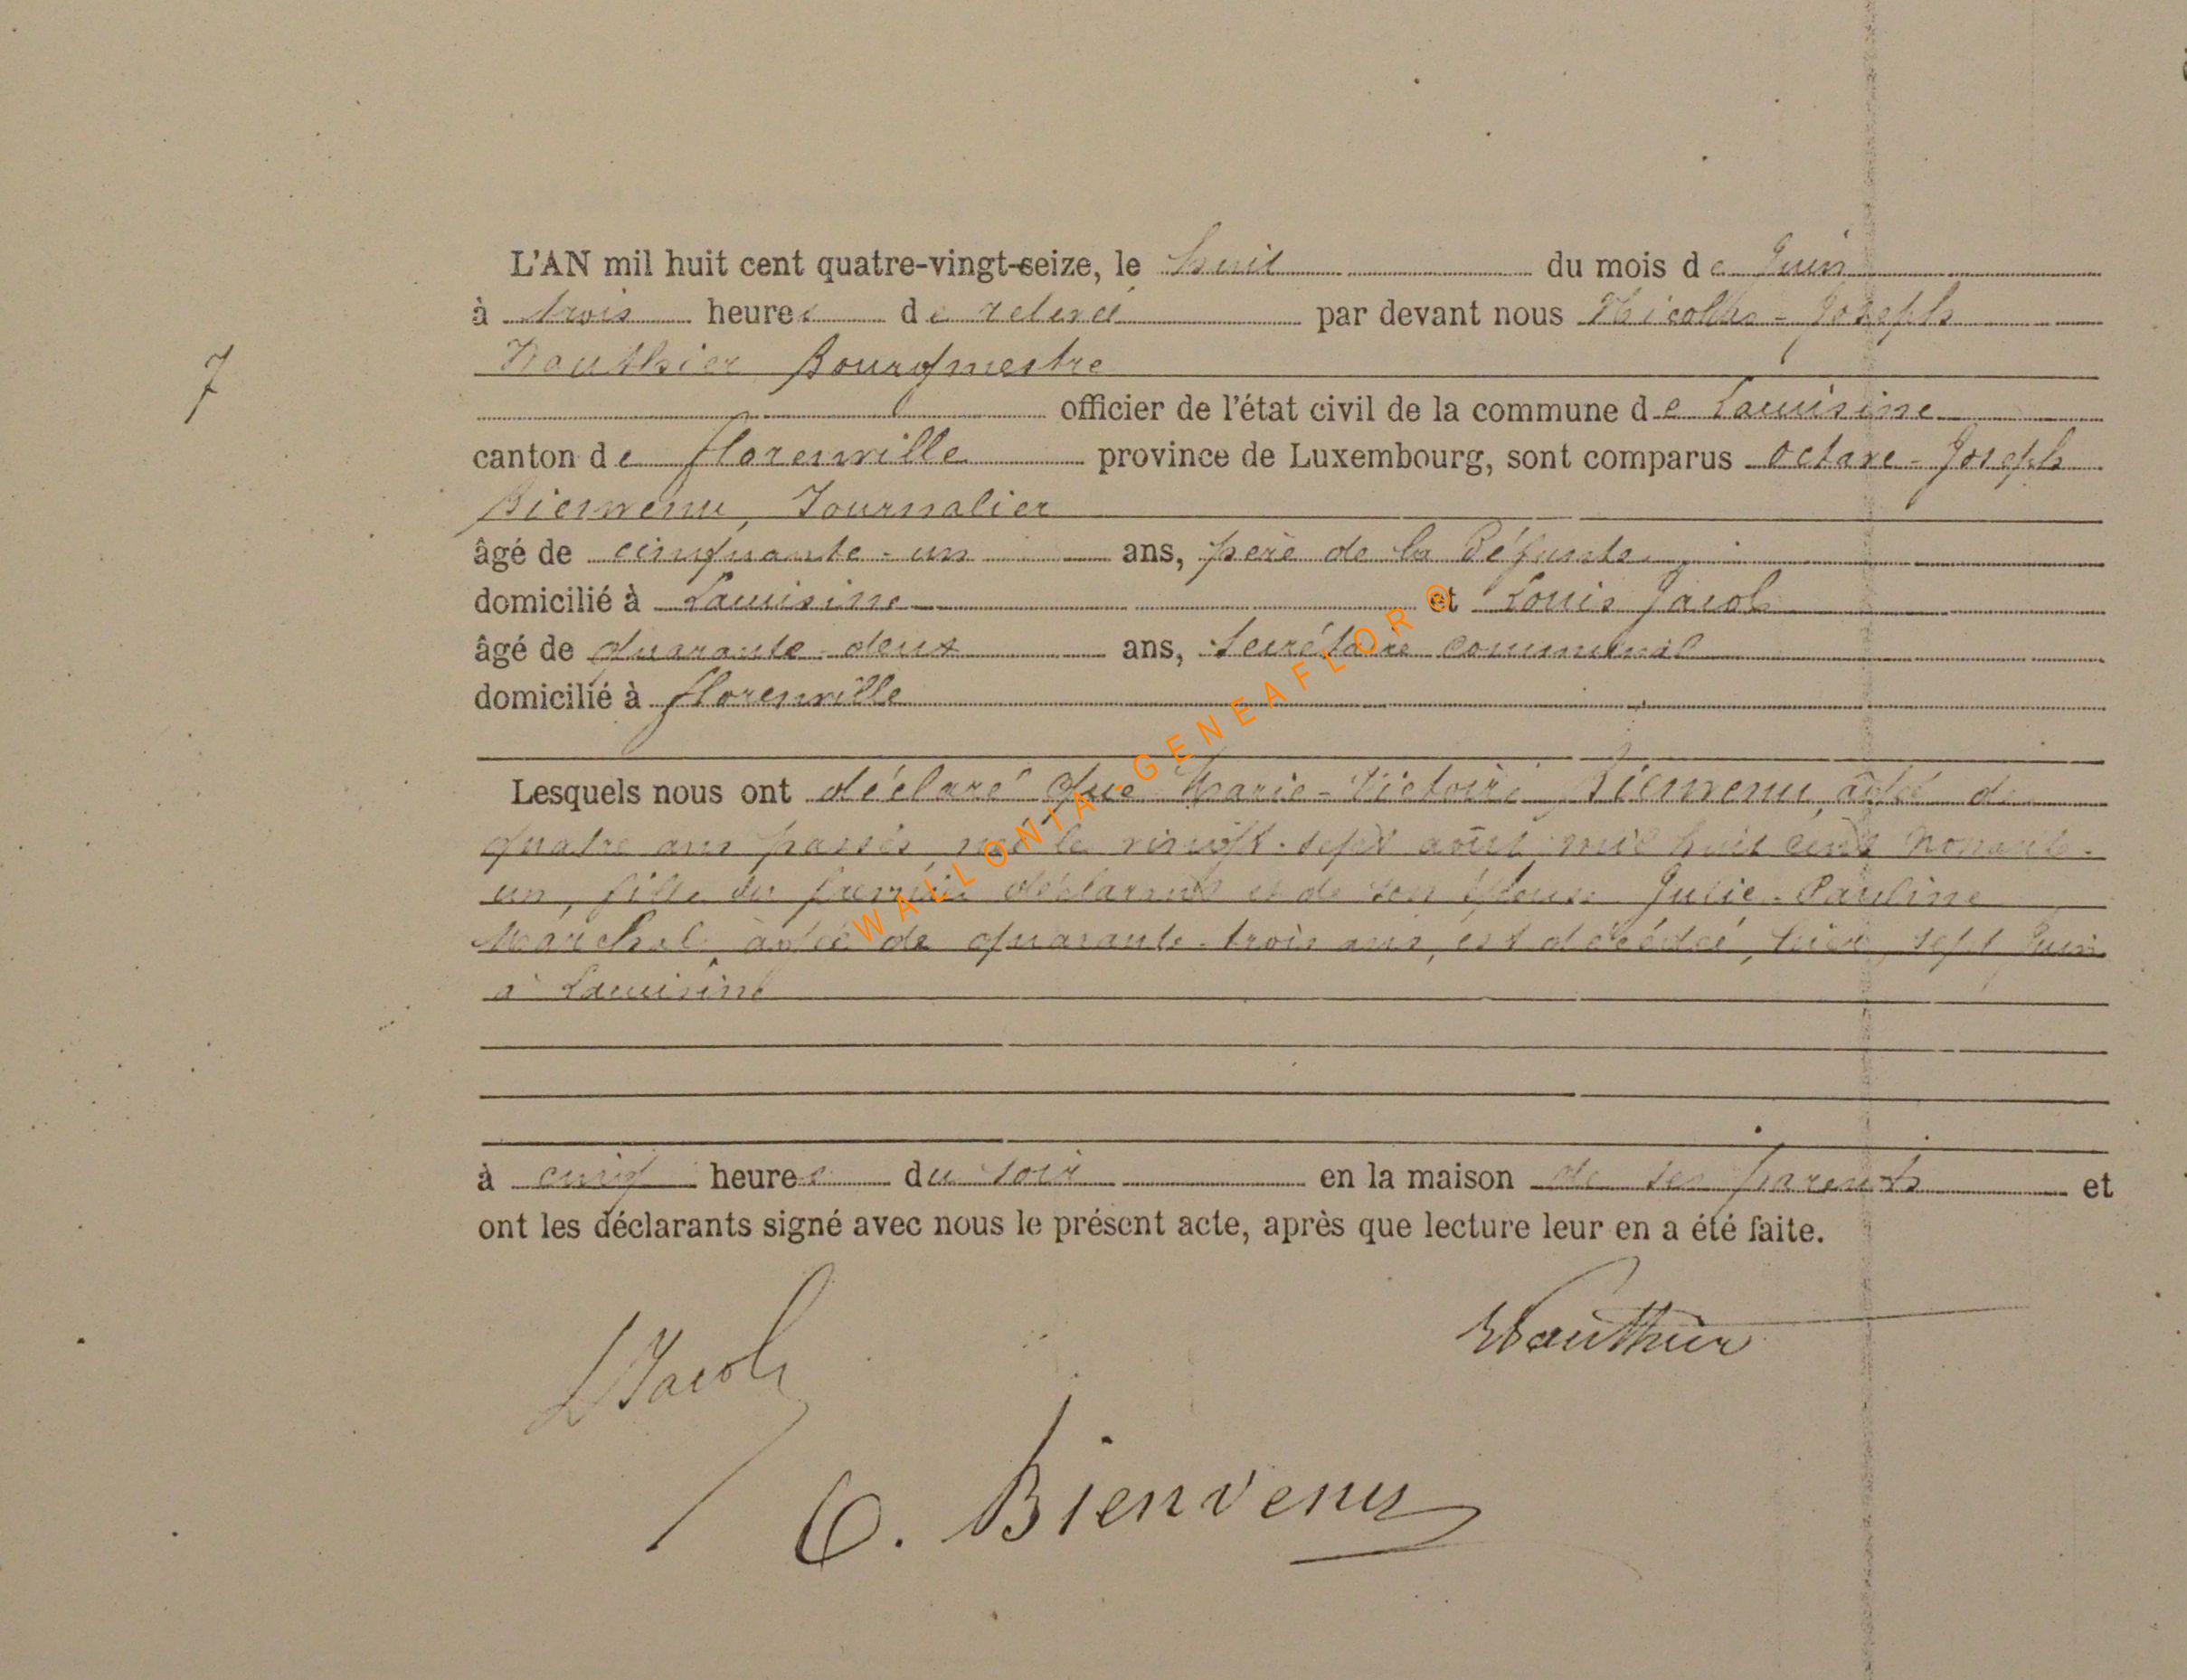 L'AN mil huit cent quatre-vingt-seize, le huit du mois de Juin
à trois heures de relevé par devant nous Joseph
Wauthier Bourgmestre
7
officier de l'état civil de la commune de Lacuisine
canton de florenville province de Luxembourg, sont comparus octave-Joseph
Bienvenu, Journalier
âgé de cinquante-un ans, père de la défunte
domicilié à Lacuisine et Louis Jacob
âgé de quarante-deux ans, Secrétaire communal
domicilié à florenville
Lesquels nous ont déclaré que Marie-Victoire Bienvenu, âgée de
quatre ans passés, née le vingt-sept août mil huit cent nonante-
un, fille du premier déclarant et de son épouse Julie-Pauline
Marchal âgée de quarante-trois ans, est décédée, hier, sept Juin
à Lacuisine
à cinq heures du soir en la maison de ses parents et
ont les déclarants signé avec nous le présent acte, après que lecture leur en a été faite.
Wauthier
L Jacob
O. Bienvenu
WALLONIA - GENEAFLOR ®